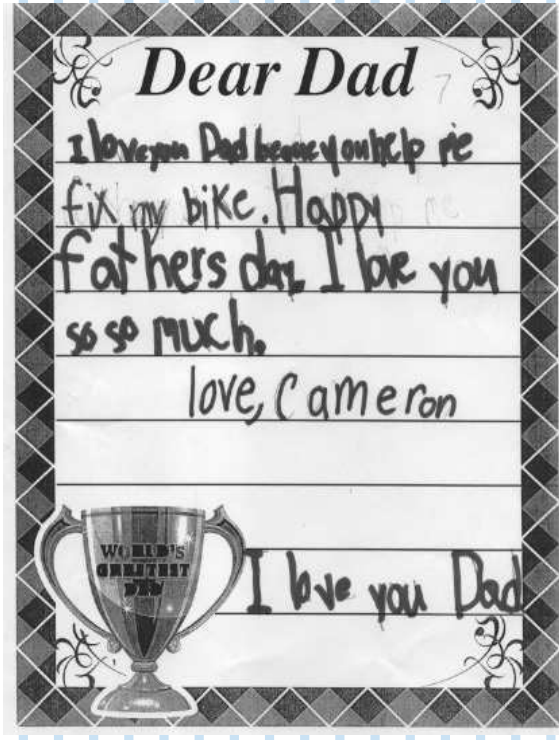 Dear Dad
I love you Dad becauc you help me
fix my bike. Happy
fathers day. I love you
so so much.
love, Cameron
WORLD'S
GREATEST
DAD
I love you Dad